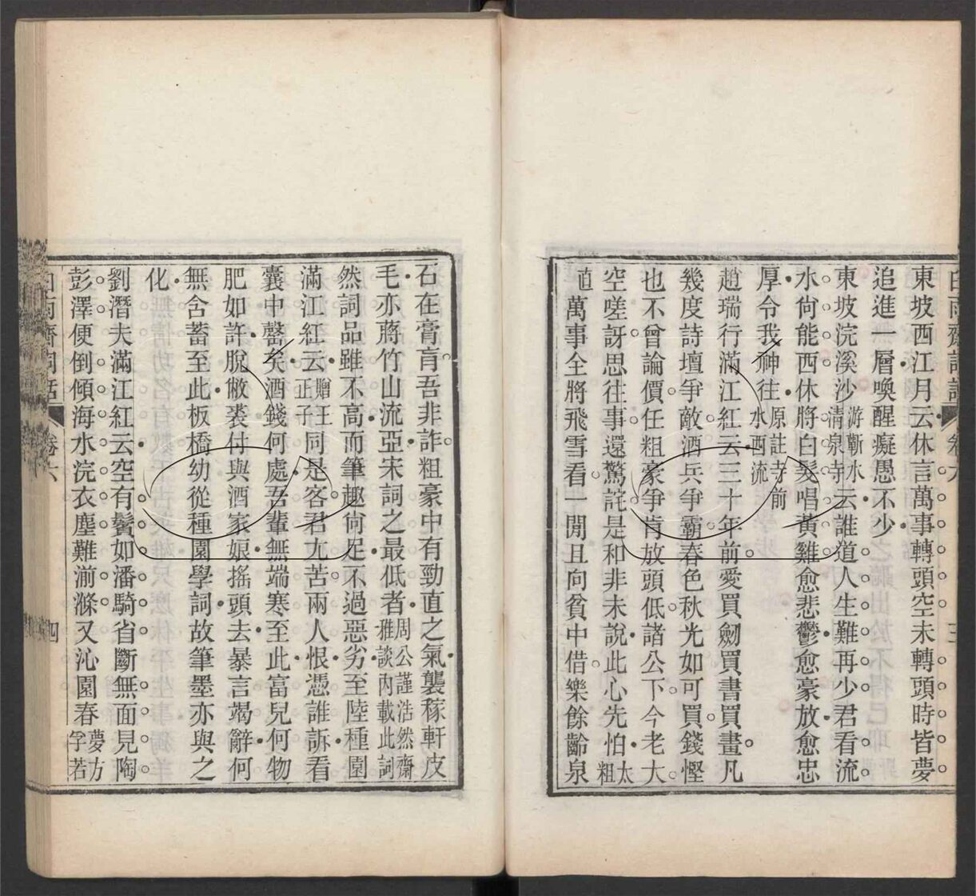 白雨齋詞話
卷六
三
東坡西江月云休言萬事轉頭空未轉頭時皆夢
追進一層喚醒癡愚不少
東坡浣溪沙游蘄水清泉寺云誰道人生難再少君看流
水尙能西休將白髮唱黃雞愈悲鬱愈豪放愈忠
厚令我神往原註寺前水西流
趙瑞行滿江紅云三十年前愛買劒買書買畫凡
幾度詩壇爭敵酒兵爭霸春色秋光如可買錢慳
也不曾論價任粗豪爭肯放頭低諸公下今老大
空嗟訝思往事還驚詫是和非未說此心先怕太粗
直萬事全將飛雪看一閒且向貧中借樂餘齡泉
石在膏肓吾非詐粗豪中有勁直之氣襲稼軒皮
毛亦蔣竹山流亞宋詞之最低者周公謹浩然齋雅談內載此詞
然詞品雖不高而筆趣尙足不過惡劣至陸種園
滿江紅云贈王正子同是客君尢苦兩人恨憑誰訴看
囊中罄矣酒錢何處吾輩無端寒至此富兒何物
肥如許脫敝裘付與酒家娘搖頭去暴言竭辭何
無含蓄至此板橋幼從種園學詞故筆墨亦與之
化
劉潛夫滿江紅云空有鬢如潘騎省斷無面見陶
彭澤便倒傾海水浣衣塵難湔滌又沁園春夢方孚若
白雨齋詞話
卷六
四